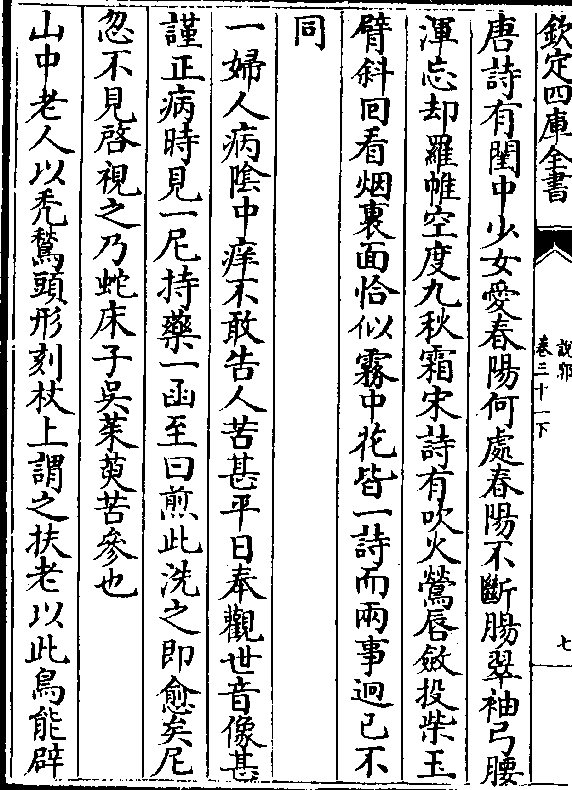 欽定四庫全書
說郛
卷三十一下
七
唐詩有閨中少女愛春陽何處春陽不斷腸翠袖弓腰
渾忘却羅帷空度九秋霜宋詩有吹火鶯唇斂投柴玉
臂斜回看烟裏面恰似霧中花皆一詩而兩事迥已不
同
一婦人病陰中痒不敢告人苦甚平日奉觀世音像甚
謹正病時見一尼持藥一函至曰煎此洗之即愈矣尼
忽不見啓視之乃蛇床子吳茱萸苦參也
山中老人以禿鶖頭形刻杖上謂之扶老以此鳥能辟